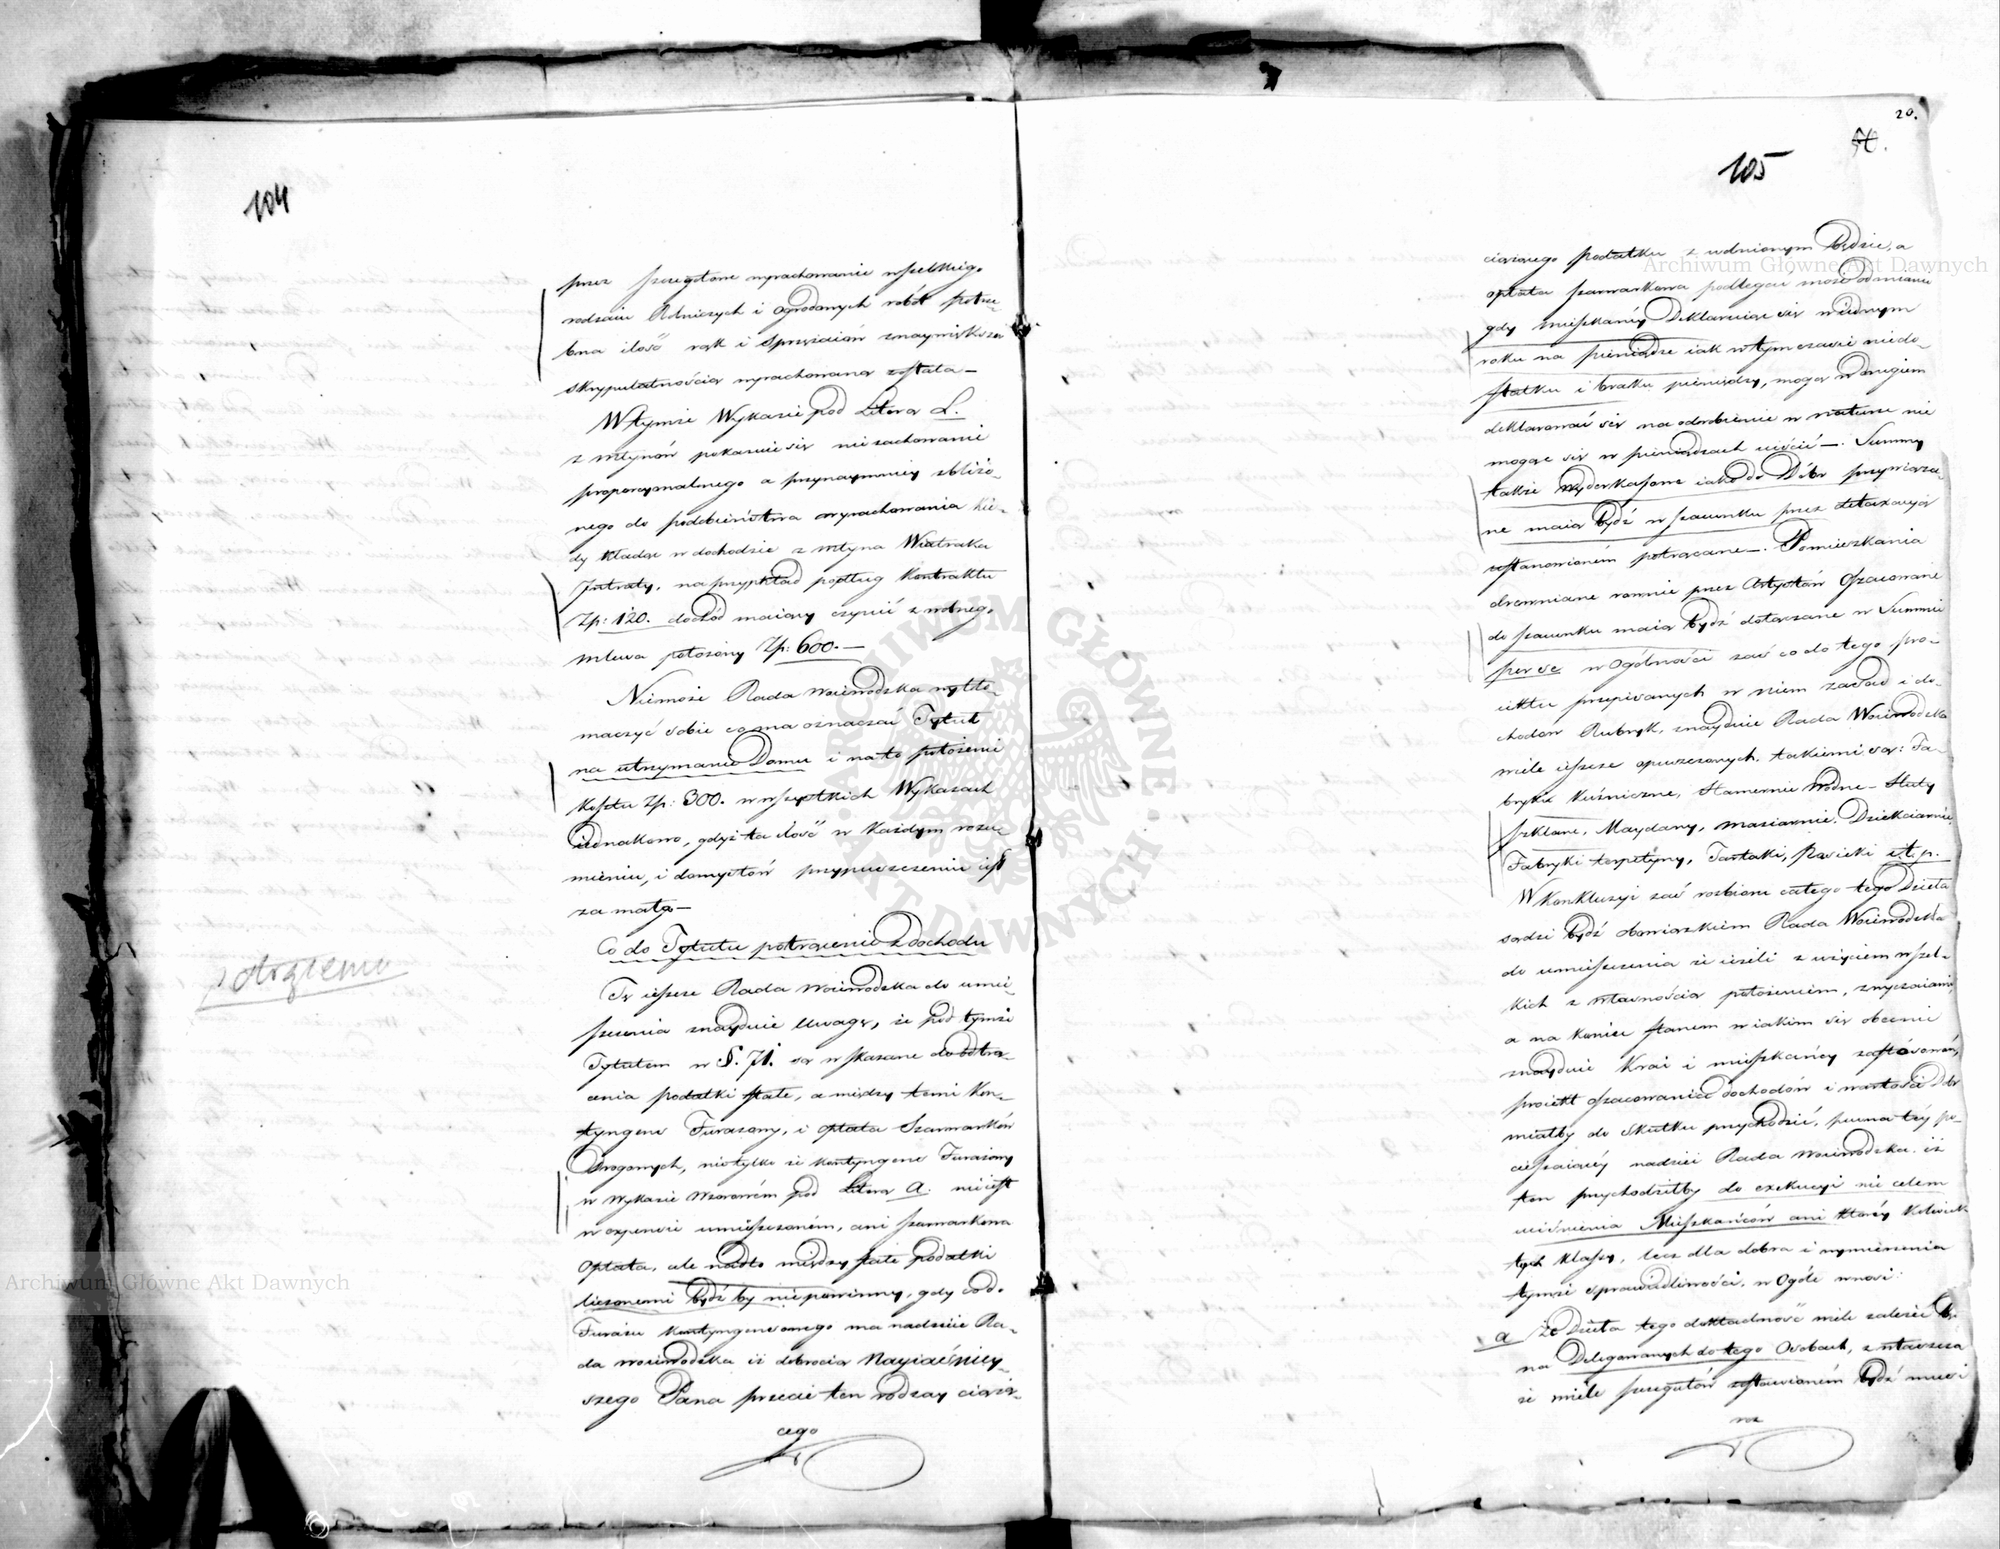 104
przez szczegółowe wyrachowanie wszelkiego
rodzaiu Rolniczych i ogrodowych robót potrze-
bna ilość rąk i sprzężaiów z naywiększą
skrypulatnością wyrachowaną została —
W tymże Wykazie pod Literą L.
z młynów pokazuie się nie zachowanie
proporcyonalnego a przynaymniey zbliżo-
nego do podobieństwa wyrachowania kie-
dy kładąc w dochodzie z młyna Wiatraka
Intraty, na przykład podług Kontraktu
Zp: 120. dochód maiący czynić z wolnego
mlewa położony Zp: 600. —
Niemoże Rada Woiewodzka wytło-
maczyć sobie co ma oznaczać Tytuł
na utrzymanie Domu i na to położenie
kosztu Zp: 300. w wszystkich Wykazach
iednakowo, gdyż ta ilość w każdym rozu-
mieniu, i domysłów przypuszczeniu iest
za małą —
Co do Tytułu potrącenie z dochodu
potrącenia
Tę ieszcze Rada Woiewodzka do umie-
szczenia znayduie uwagę, że pod tymże
Tytułem w §. 71. są wskazane do odtrą-
cenia podatki stałe, a między temi Kon-
tyngens Furażowy, i opłata Szarwarków
Drogowych, nietylko że kontyngens Furażowy
w Wykazie Wzorowém pod Literą A. nie iest
w expensie umieszczoném, ani szarwarkowa
opłata, ale nadto między stałe podatki
liczonemi bydź by niepowinny, gdy co do
Furażu kontyngensowego ma nadzieie Ra-
da woiewodzka iż dobrocią Nayiaśniey-
szego Pana przecie ten rodzay ciążą-
cego
20.
105
ciążącego podatku z wolnionym będzie, a
opłata szarwarkowa podlegać może odmianie
gdy mieszkańcy Deklaruiąc się w iednym
roku na pieniądze iak w tym czasie niedo-
statku i braku pieniędzy, mogą w drugiem
deklarować się na odrobienie w naturze nie
mogąc się w pieniądzach uiścić —. Summy
także wyderkafowe iako do Dóbr przywiąza-
ne maią bydź w szacunku przez detaxacyą
zstanowioném potrącane —. Pomieszkania
drewniane równie przez Artystów oszacowane
do szacunku maią bydź dołączane w Summie
per se w ogólności zaś co do tego pro-
iektu przepisanych w niem zasad i do-
chodów Rubryk, znayduie Rada Woiewodzka
wiele ieszcze opuszczonych, takiemi są: Fa-
bryki kuźniczne, Hamernie Wodne — Huty
Szklane, Maydany, maziarnie, Dziekciarnie,
Fabryki terpetyny, Tartaki, Pasieki e.t.p.
W Konkluzyi zaś rozbioru całego tego Dzieła
sądzi bydź obowiązkiem Rada Woiewodzka
do umieszczenia że ieżeli z użyciem wszel-
kich z własnością położeniem, zwyczaiami,
a na koniec stanem w iakim się obecnie
znayduie Kray i mieszkańcy zastósowań,
proiekt oszacowania dochodów i wartości Dóbr
miałby do skutku przychodzić, pewna téy po-
cieszaiącéy nadziei Rada woiewodzka iż
ten przychodziłby do exekucyi nie celem
uciśnienia Mieszkańców ani któréy kolwiek
tych klassy, lecz dla dobra i wymierzenia
tymże sprawiedliwości, w ogóle wnosi:
a że Dzieła tego dokładność wiele zależeć bę-
na Delegowanych do tego Osobach, z właszcza
że wiele szczegułów zstawioném bydź musi
roz
Archiwum Główne Akt Dawnych
Archiwum Główne Akt Dawnych
ARCHIWUM GŁÓWNE AKT DAWNYCH